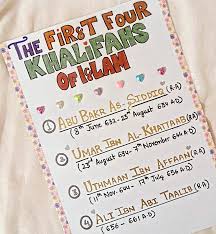 THE FIRST FOUR
KHALIFAHS
OF ISLAM
1 ABU BAKR AS-SIDDIQ (R.A)
(8th June 632 - 23rd August 634 A.D)
2 UMAR IBN AL-KHATTAAB (R.A)
(23rd August 634 - 7th November 644 A.D)
3 UTHMAAN IBN AFFAAN (R.A)
(11th Nov. 644 - 17th July 656 A.D)
4 ALI IBN ABI TAALIB (R.A)
(656 - 661 A.D)